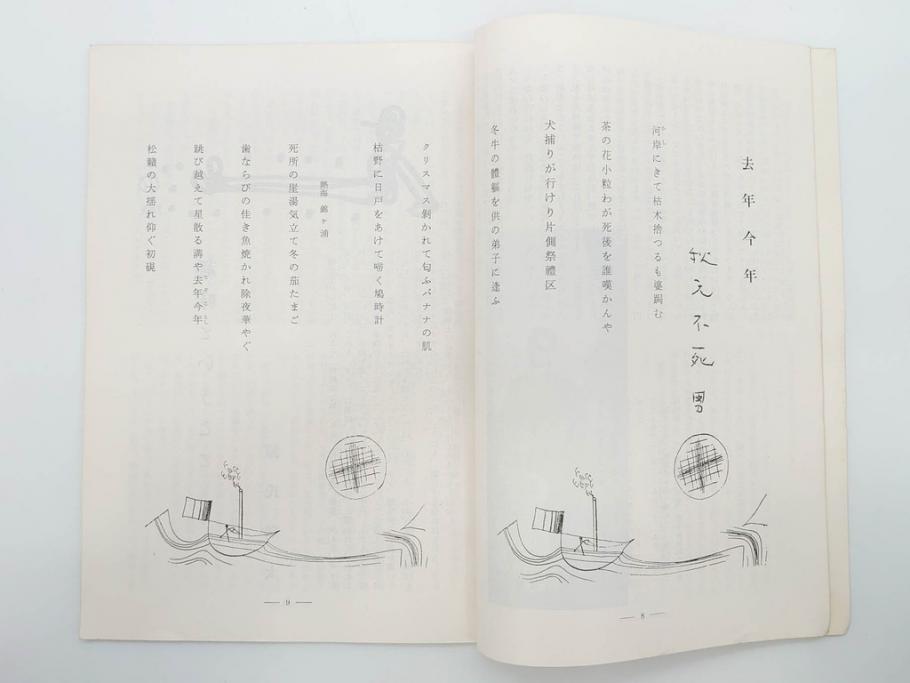 去年今年
秋元不死男
河岸にきて枯木捨つるも婆跼む
かし
茶の花小粒わが死後を誰嘆かんや
犬捕りが行けり片側祭禮区
冬牛の體軀を供の弟子に逢ふ
— 8 —
クリスマス剝かれて匂ふバナナの肌
枯野に日戸をあけて啼く鳩時計
熱海 錦ヶ浦
死所の崖湯気立て冬の茹たまご
歯ならびの佳き魚焼かれ除夜華やぐ
跳び越えて星散る溝や去年今年
松籟の大揺れ仰ぐ初硯
— 9 —